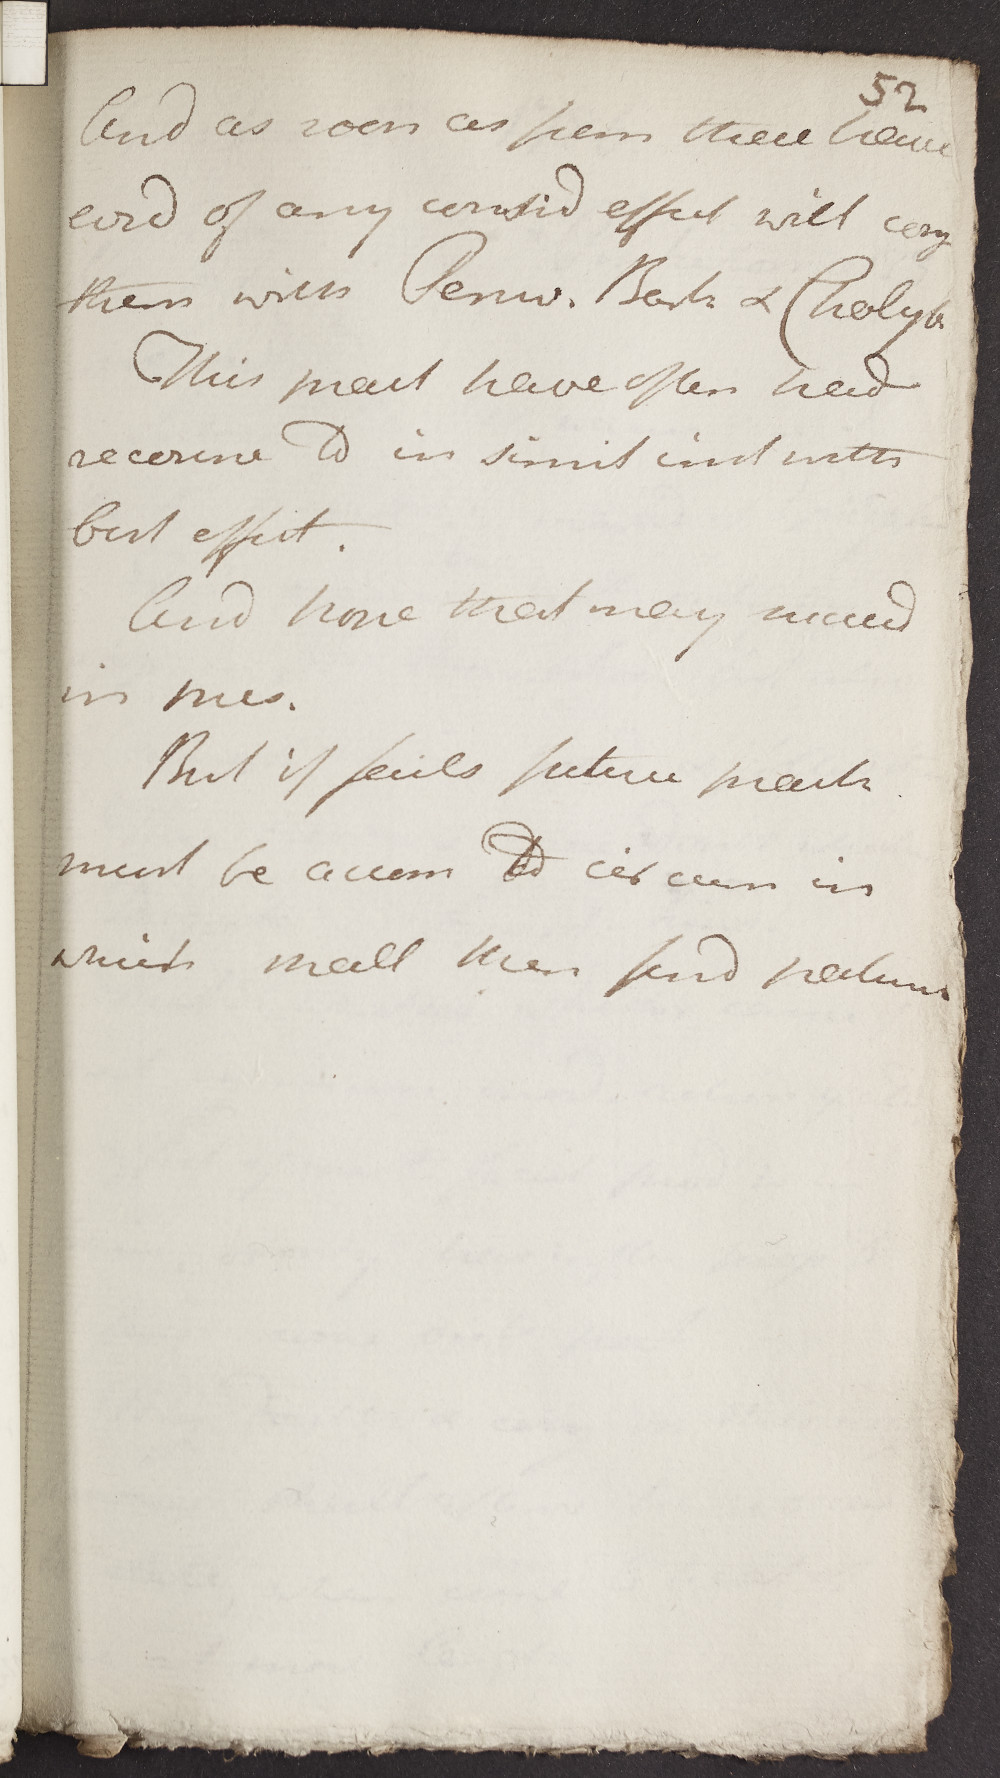 52
And as soon as from these have
evid of any consid effect will conj
them with Peruv. Bark & Chalyb.
This pract have often had
recourse to in simil inst with
best effect.
And hope that may succeed
in pres.
But if fails future pract
must be accom to circum in
which shall then find patient